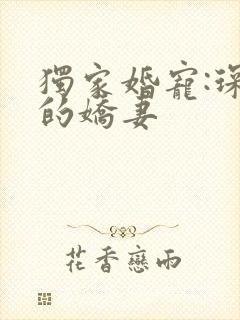 獨家婚寵:琛
的嬌妻
花香戀雨